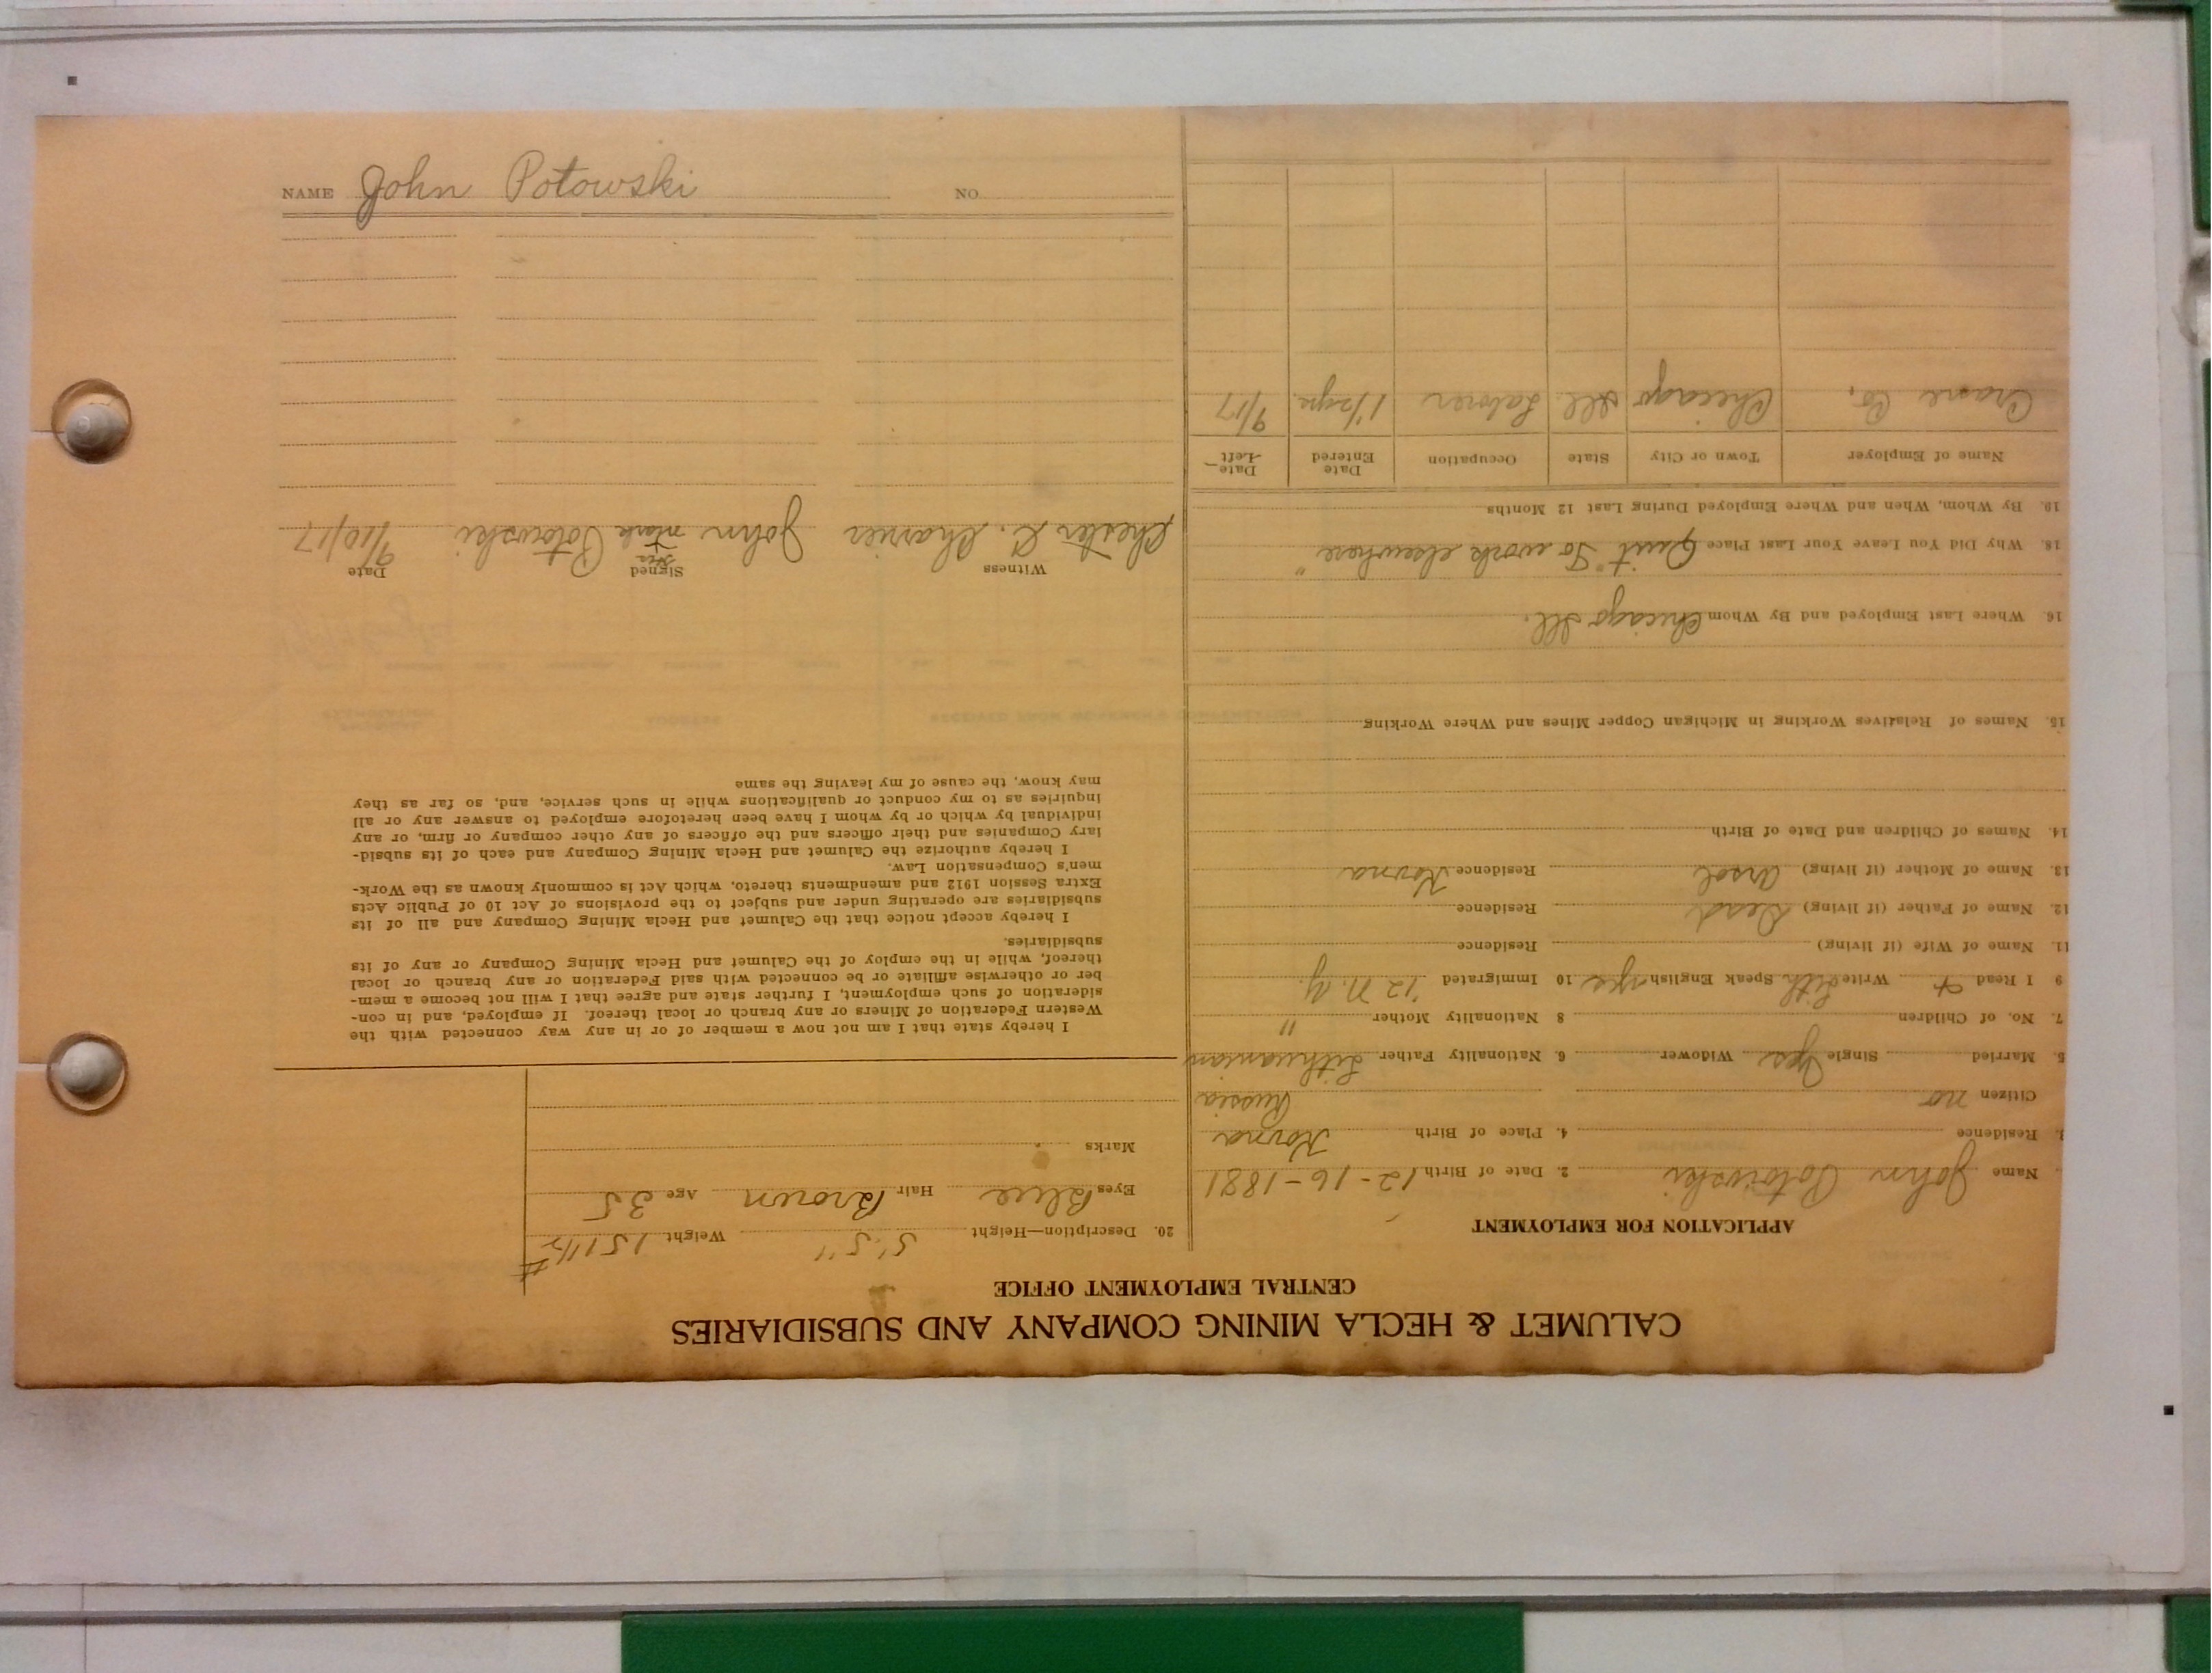 CALUMET & HECLA MINING COMPANY AND SUBSIDIARIES
CENTRAL EMPLOYMENT OFFICE
APPLICATION FOR EMPLOYMENT
Name John Potowski 2. Date of Birth 12-16-1881
3. Residence 4. Place of Birth Kovna
Citizen no Russia
5. Married Single Yes Widower 6. Nationality Father Lithuanian
7. No. of Children 8 Nationality Mother "
9 I Read + Write Lith Speak English yes 10 Immigrated '12 N.Y.
11. Name of Wife (if living) Residence
12. Name of Father (if living) Dead Residence
13. Name of Mother (if living) Ursel Residence Kovna
14. Names of Children and Date of Birth
15. Names of Relatives Working in Michigan Copper Mines and Where Working
16 Where Last Employed and By Whom Chicago Ill.
18. Why Did You Leave Your Last Place Quit "To work elsewhere"
19. By Whom, When and Where Employed During Last 12 Months
Name of Employer Town or City State Occupation Date Entered Date Left
Crane Co. Chicago Ill. Laborer 1 1/2 yr. 9/17
20. Description—Height 5' 5" Weight 151 1/2 #
Eyes Blue Hair Brown Age 35
Marks
I hereby state that I am not now a member of or in any way connected with the
Western Federation of Miners or any branch or local thereof. If employed, and in con-
sideration of such employment, I further state and agree that I will not become a mem-
ber or otherwise affiliate or be connected with said Federation or any branch or local
thereof, while in the employ of the Calumet and Hecla Mining Company or any of its
subsidiaries.
I hereby accept notice that the Calumet and Hecla Mining Company and all of its
subsidiaries are operating under and subject to the provisions of Act 10 of Public Acts
Extra Session 1912 and amendments thereto, which Act is commonly known as the Work-
men's Compensation Law.
I hereby authorize the Calumet and Hecla Mining Company and each of its subsid-
iary Companies and their officers and the officers of any other company or firm, or any
individual by which or by whom I have been heretofore employed to answer any or all
inquiries as to my conduct or qualifications while in such service, and, so far as they
may know, the cause of my leaving the same
Witness Signed Date
Chester C. Charrier John his + mark Potowski 9/10/17
NAME John Potowski NO.